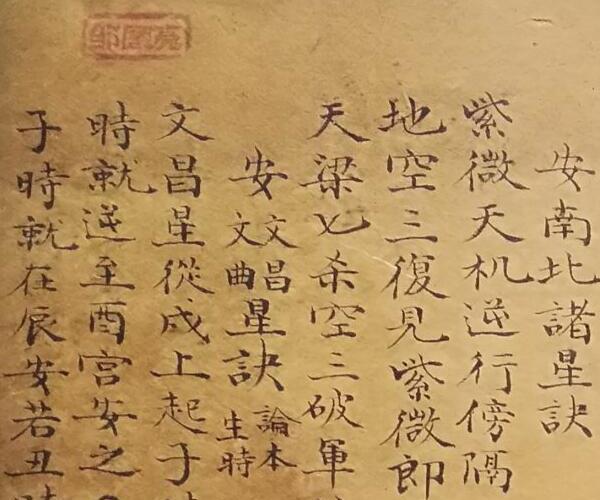 安南北諸星訣
紫微天机逆行傍隔
地空三復見紫微郎
天梁七杀空三破軍
安文昌文曲星訣 論本生時
文昌星從戌上起子
時就逆至酉宮安之
子時就在辰安若丑時